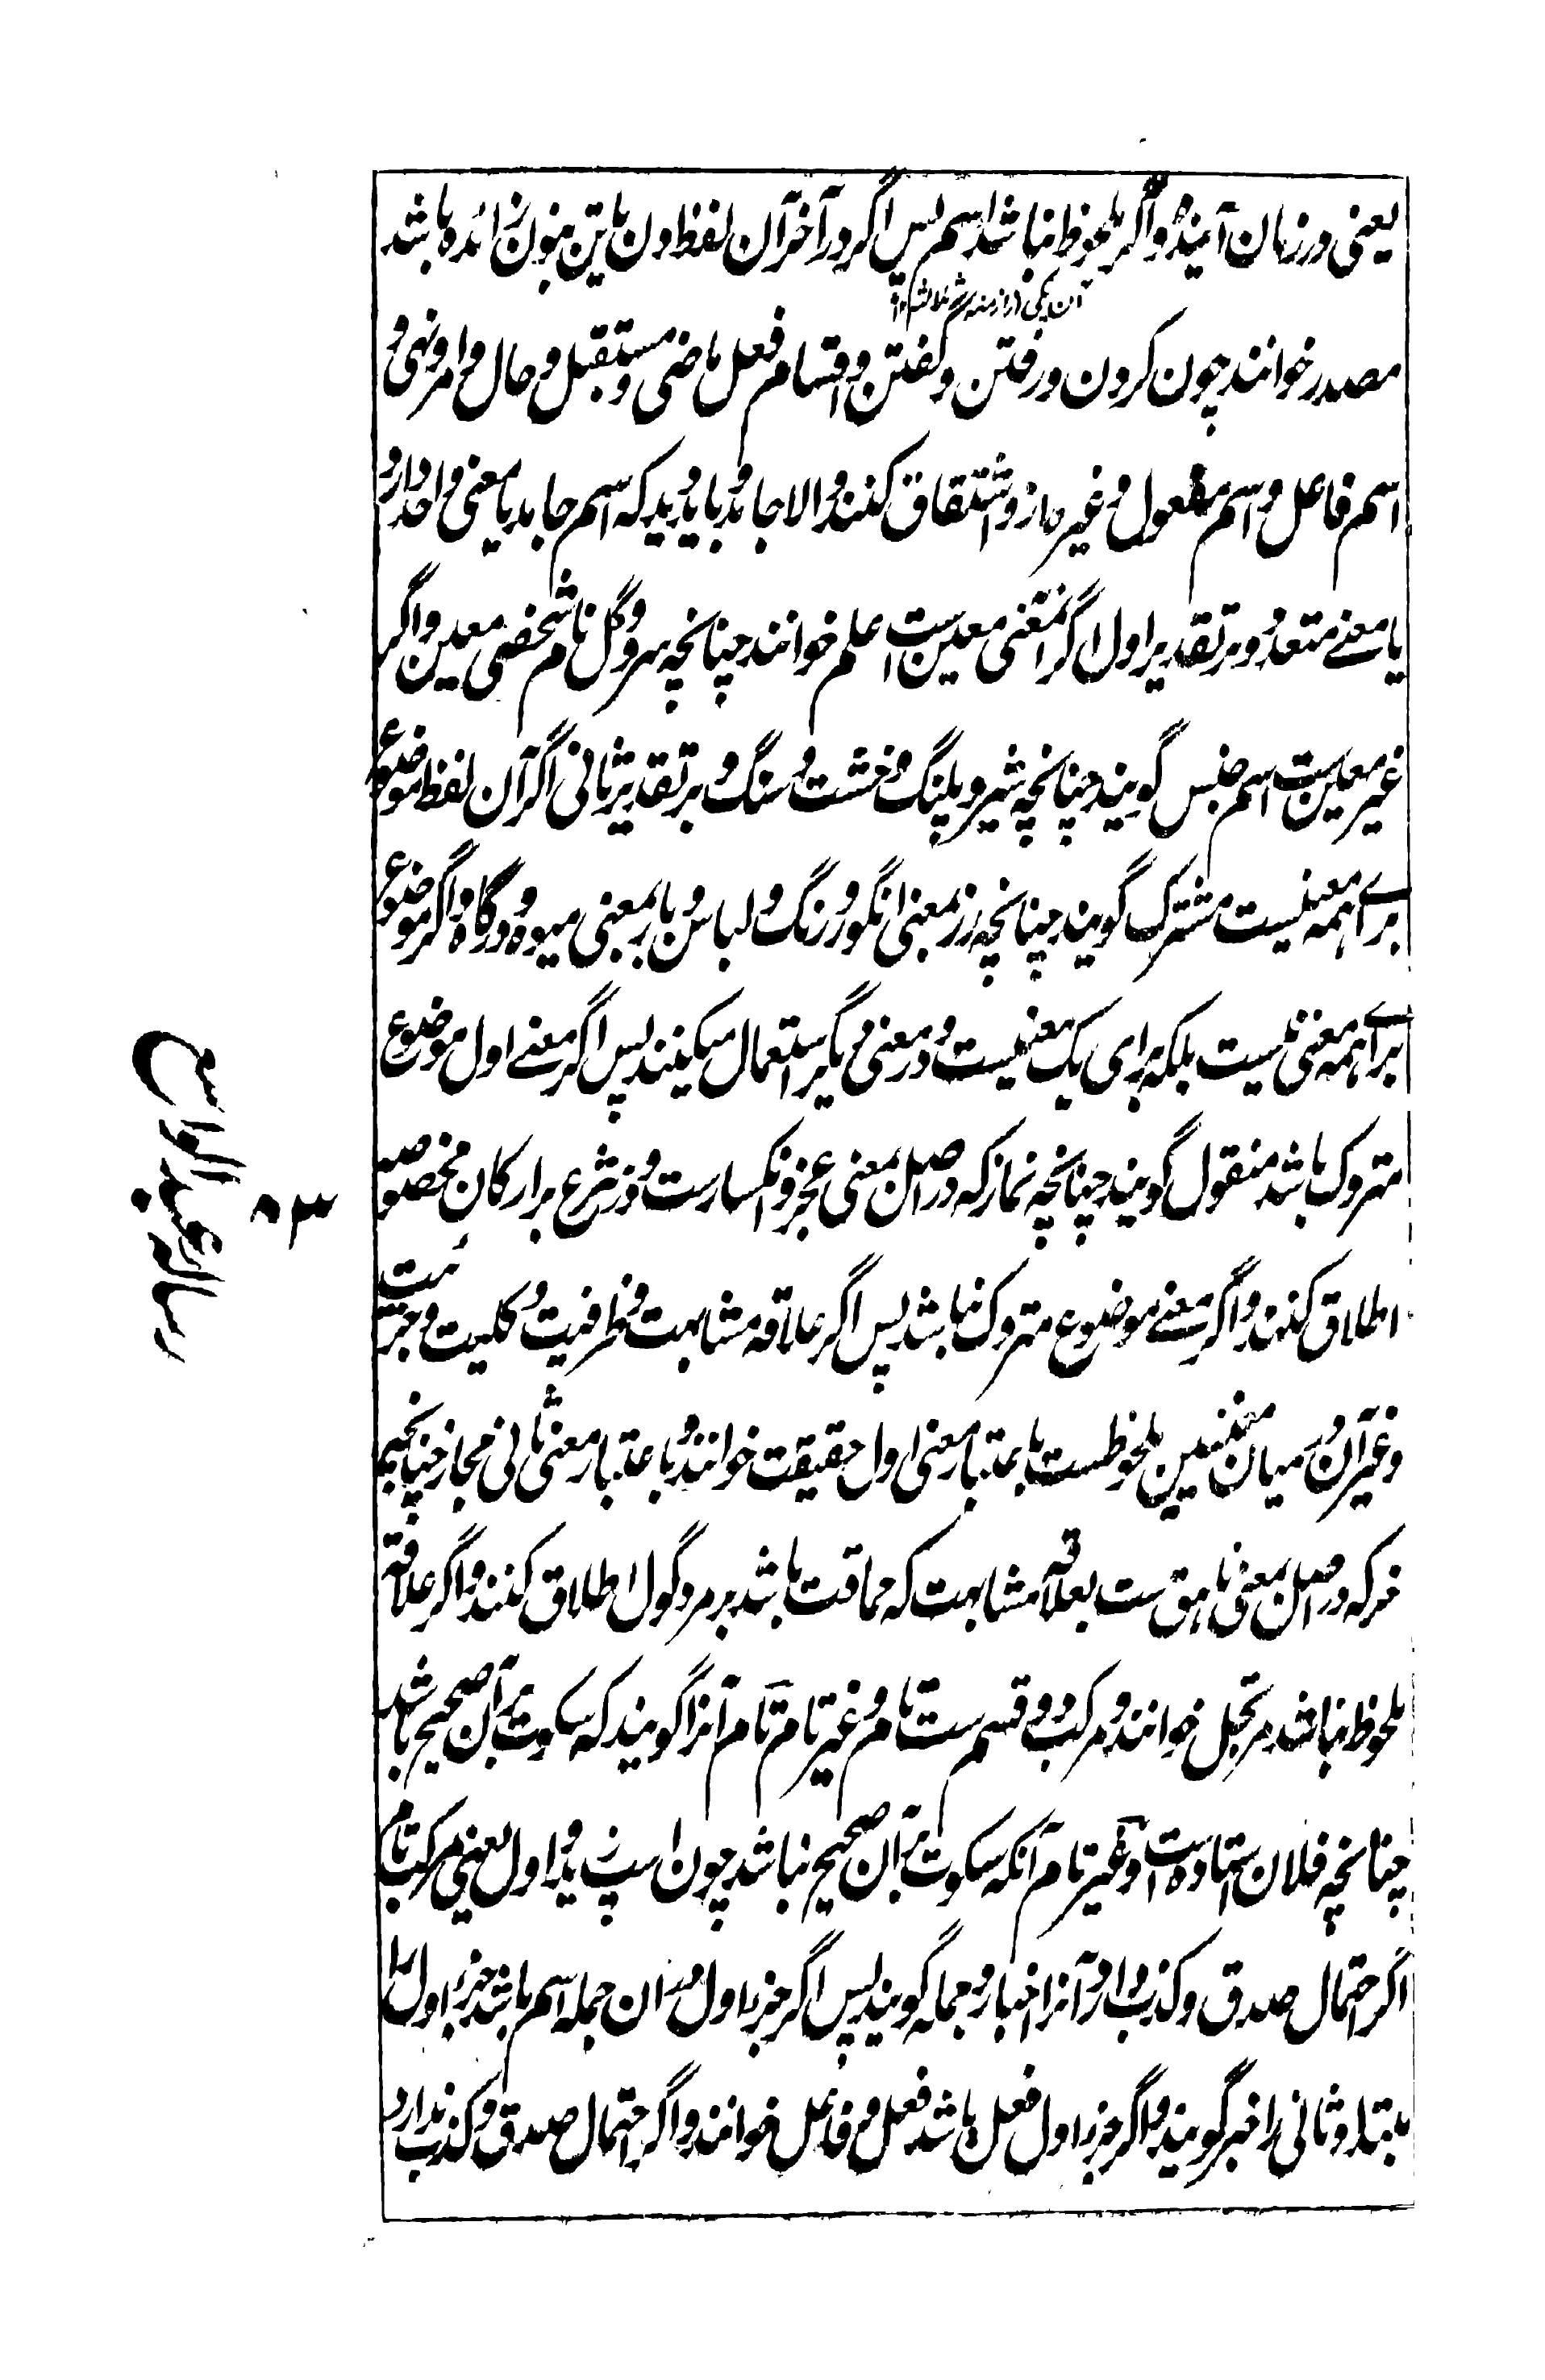 یعنی در زمان آینده و اگر ملحوظ نباشد اسم پس اگر در آخر آن لفظ دن یا تن بنون زائده باشد
آن یکی از ازمنه ثلاثه ۱۲
مصدر خوانند چون کردن و رفتن و گفتن و اقسام فعل ماضی و مستقبل و حال و امر و نهی و
اسم فاعل و اسم مفعول و غیرها ازو اشتقاق کنند و الا جامد و باید دید که اسم جامد یا معنی واحد دارد
یا معنے متعدد و بر تقدیر اول اگر آنمعنی معین ست علم خوانند چنانچه سرو و گل نام شخصی معین و اگر
غیر معین ست اسم جنس گویند چنانچه شیر و پلنگ و خشت و سنگ و بر تقدیر ثانی اگر آن لفظ موضوع
براے همه معنیست مشترک گویند چنانچه رز بمعنی انگور و رنگ و لباس و بار بمعنی میوه و درگاه و اگر موضوع
براے همه معنی نیست بلکه برای یک معنیست و در معنی دیگر استعمال میکنند پس اگر معنے اول موضوع
متروک باشد منقول گویند چنانچه نماز که در اصل بمعنی عجز و انکسارست و در شرع بر ارکان مخصوصه
اطلاق کنند و اگر معنے موضوع متروک نباشد پس اگر علاقه مشابهت و ظرفیت و کلیت و جزئیت
و غیر آن در میان معنیین ملحوظست باعتبار معنی اول حقیقت خوانند و باعتبار معنی ثانی مجاز چنانچه
خر که در اصل بمعنی ناهق ست بعلاقه مشابهت که حماقت باشد بر مرد گول اطلاق کنند و اگر علاقه
ملحوظ نباشد مرتجل خوانند و مرکب دو قسم ست تام و غیر تام تام آنرا گویند که سکوت بر آن صحیح باشد
چنانچه فلان ستاده است و غیر تام آنکه سکوت بر آن صحیح نباشد چون اسپ زید و اول یعنی مرکب تام
اگر احتمال صدق و کذب دارد آنرا اخبار و جمله گویند پس اگر جزء اول در آن جمله اسم باشد جزء اول را
مبتدا و ثانی را خبر گویند و اگر جزء اول فعل باشد فعل و فاعل خوانند و اگر احتمال صدق و کذب ندارد
رساله عبدالواسع